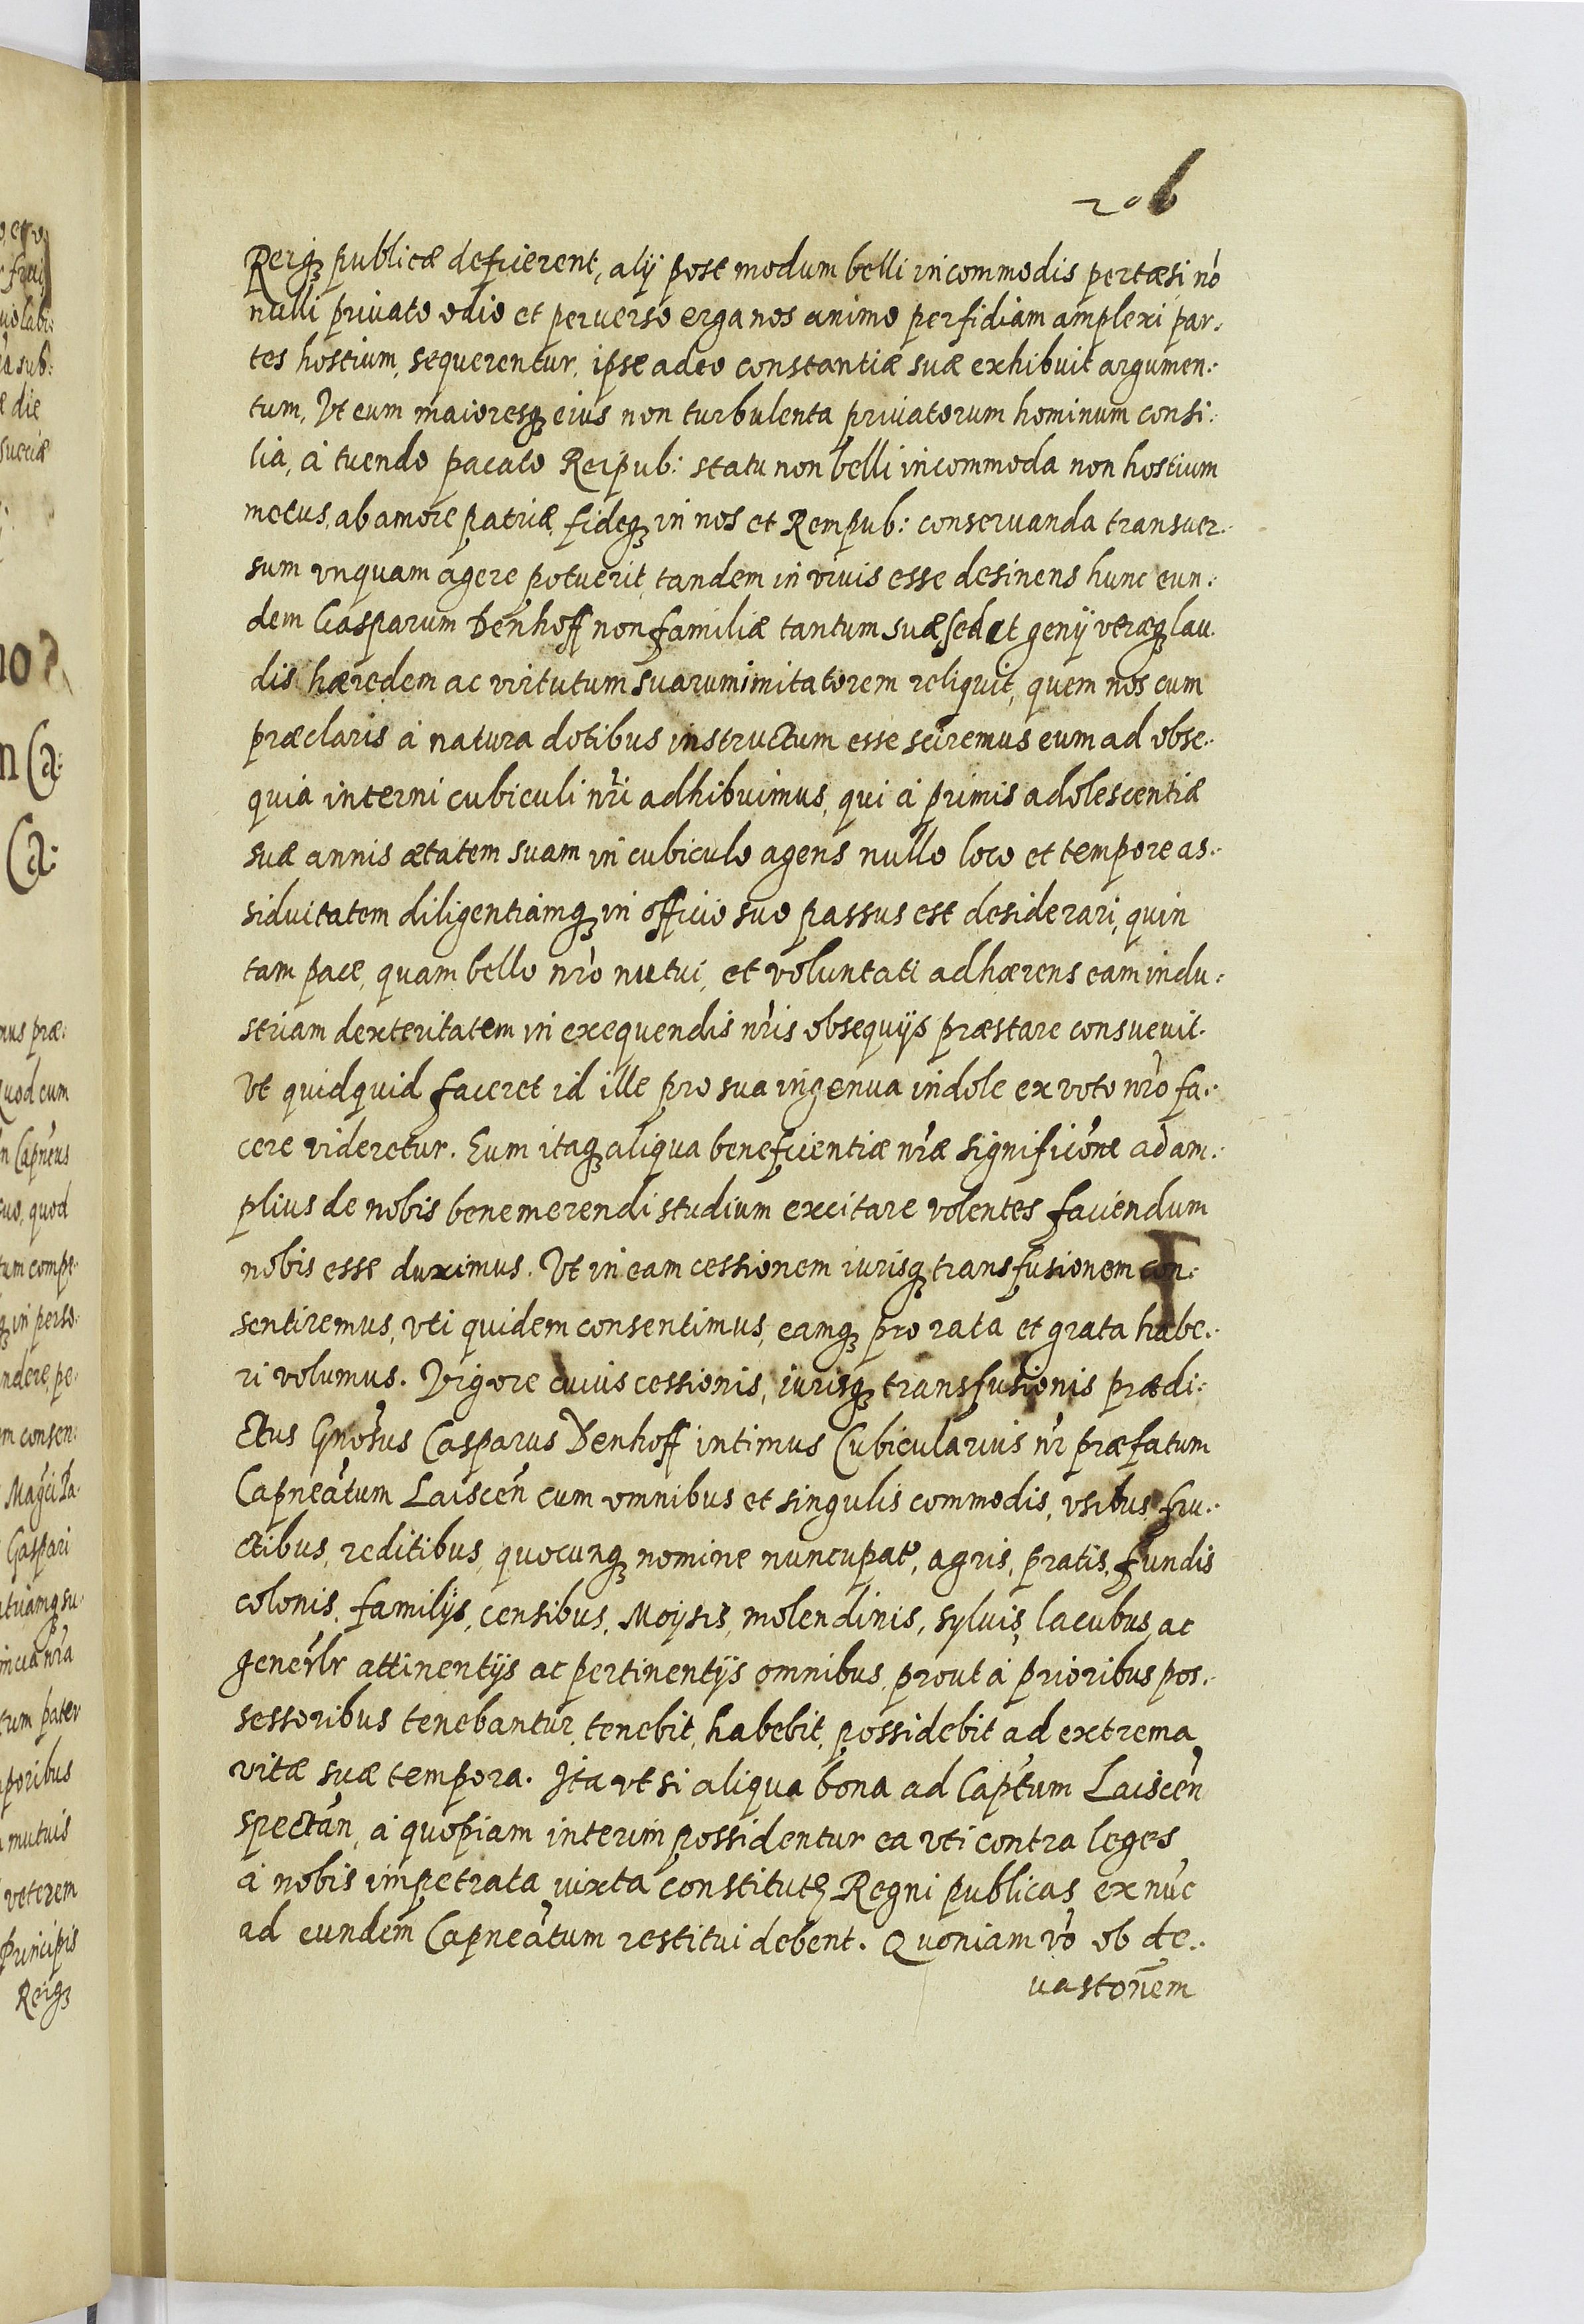 206
Reiq₃ publicæ deficerent, alij post modum belli incommodis pertæsi nō
nulli priuato odio et peruerso erga nos animo perfidiam amplexi par:
tes hostium, sequerentur, ipse adeo constantiæ suæ exhibuit argumen:
tum. Vt eum maioresq₃ eius non turbulenta priuatorum hominum consi:
lia, à tuendo pacato Reipub: statu non belli incommoda non hostium
metus, ab amore patriæ, fideq₃ in nos et Rempub: conseruanda transuer:
sum vnquam agere potuerit, tandem in viuis esse desinens hunc eun:
dem Gasparum Denhoff non familiæ tantum suæ sed et genij veræq₃ lau:
dis hæredem ac virtutum suarum imitatorem reliquit, quem nos cum
præclaris à natura dotibus instructum esse sciremus eum ad obse:
quia interni cubiculi nr̄i adhibuimus, qui à primis adolescentiæ
suæ annis ætatem suam in cubiculo agens nullo loco et tempore as:
siduitatem diligentiamq₃ in officio suo passus est desiderari, quin
tam pace, quam bello nr̄o nutui, et voluntati adhærens eam indu:
striam dexteritatem in exequendis nr̄is obsequijs præstare consueuit.
Vt quidquid faceret id ille pro sua ingenua indole ex voto nr̄o fa:
cere videretur. Eum itaq₃ aliqua beneficientiæ nr̄æ significōne ad am:
plius de nobis benemerendi studium excitare volentes faciendum
nobis esse duximus. Vt in eam cessionem iurisq₃ transfusionem con:
sentiremus, vti quidem consentimus, eamq₃ pro rata et grata habe:
ri volumus. Vigore cuius cessionis, iurisq₃ transfusionis prædi:
ctus Gnōsus Casparus Denhoff intimus Cubicularius nr̄ præfatum
Capneātum Laiscēn cum omnibus et singulis commodis, vsibus, fru:
ctibus, reditibus, quocunq₃ nomine nuncupat', agris, pratis, fundis
colonis, familijs, censibus, Moysis, molendinis, syluis, lacubus, ac
genērlr attinentijs ac pertinentijs omnibus, prout à prioribus pos:
sessoribus tenebantur, tenebit, habebit, possidebit ad extrema
vitæ suæ tempora. Ita vt si aliqua bona ad Capt̄um Laiscēn
spectān, à quopiam interim possidentur ea vti contra leges
à nobis impetrata iuxta constitut₃ Regni publicas, ex nūc
ad eundem Capneātum restitui debent. Quoniam vō ob de:
uastōnem